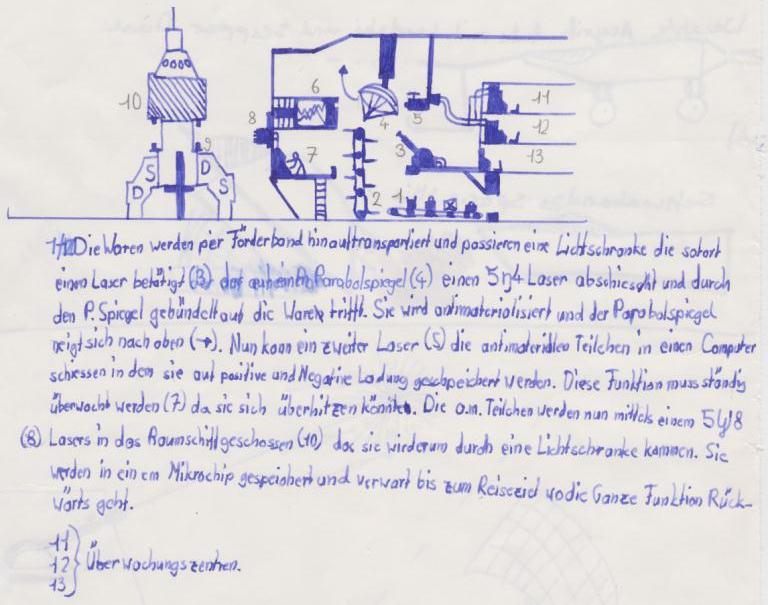 10
8
6
7
4
5
3
11
12
13
9
D
S
D
S
2
1
1/2 Die Waren werden per Förderband hinauftransportiert und passieren eine Lichtschranke die sofort
einen Laser betätigt (3) der auf ein Parabolspiegel (4) einen Laser abschiesst und durch
den P. Spiegel gebündelt auf die Waren trifft. Sie wird antimaterialisiert und der Parabolspiegel
neigt sich nach oben (→). Nun kann ein zweiter Laser (5) die antimateriellen Teilchen in einen Computer
schiessen in dem sie auf positive und Negative Ladung geschpeichert werden. Diese Funktion muss ständig
überwacht werden (7) da sie sich überhitzen könnte. Die a.m. Teilchen werden nun mittels einem
(8) Lasers in das Raumschiff geschossen (10) das sie wiederum durch eine Lichtschranke kammen. Sie
werden in einem Mikrochip gespeichert und verwart bis zum Reiseziel wo die Ganze Funktion Rück-
wärts geht.
11
12
13
Überwachungszentren.